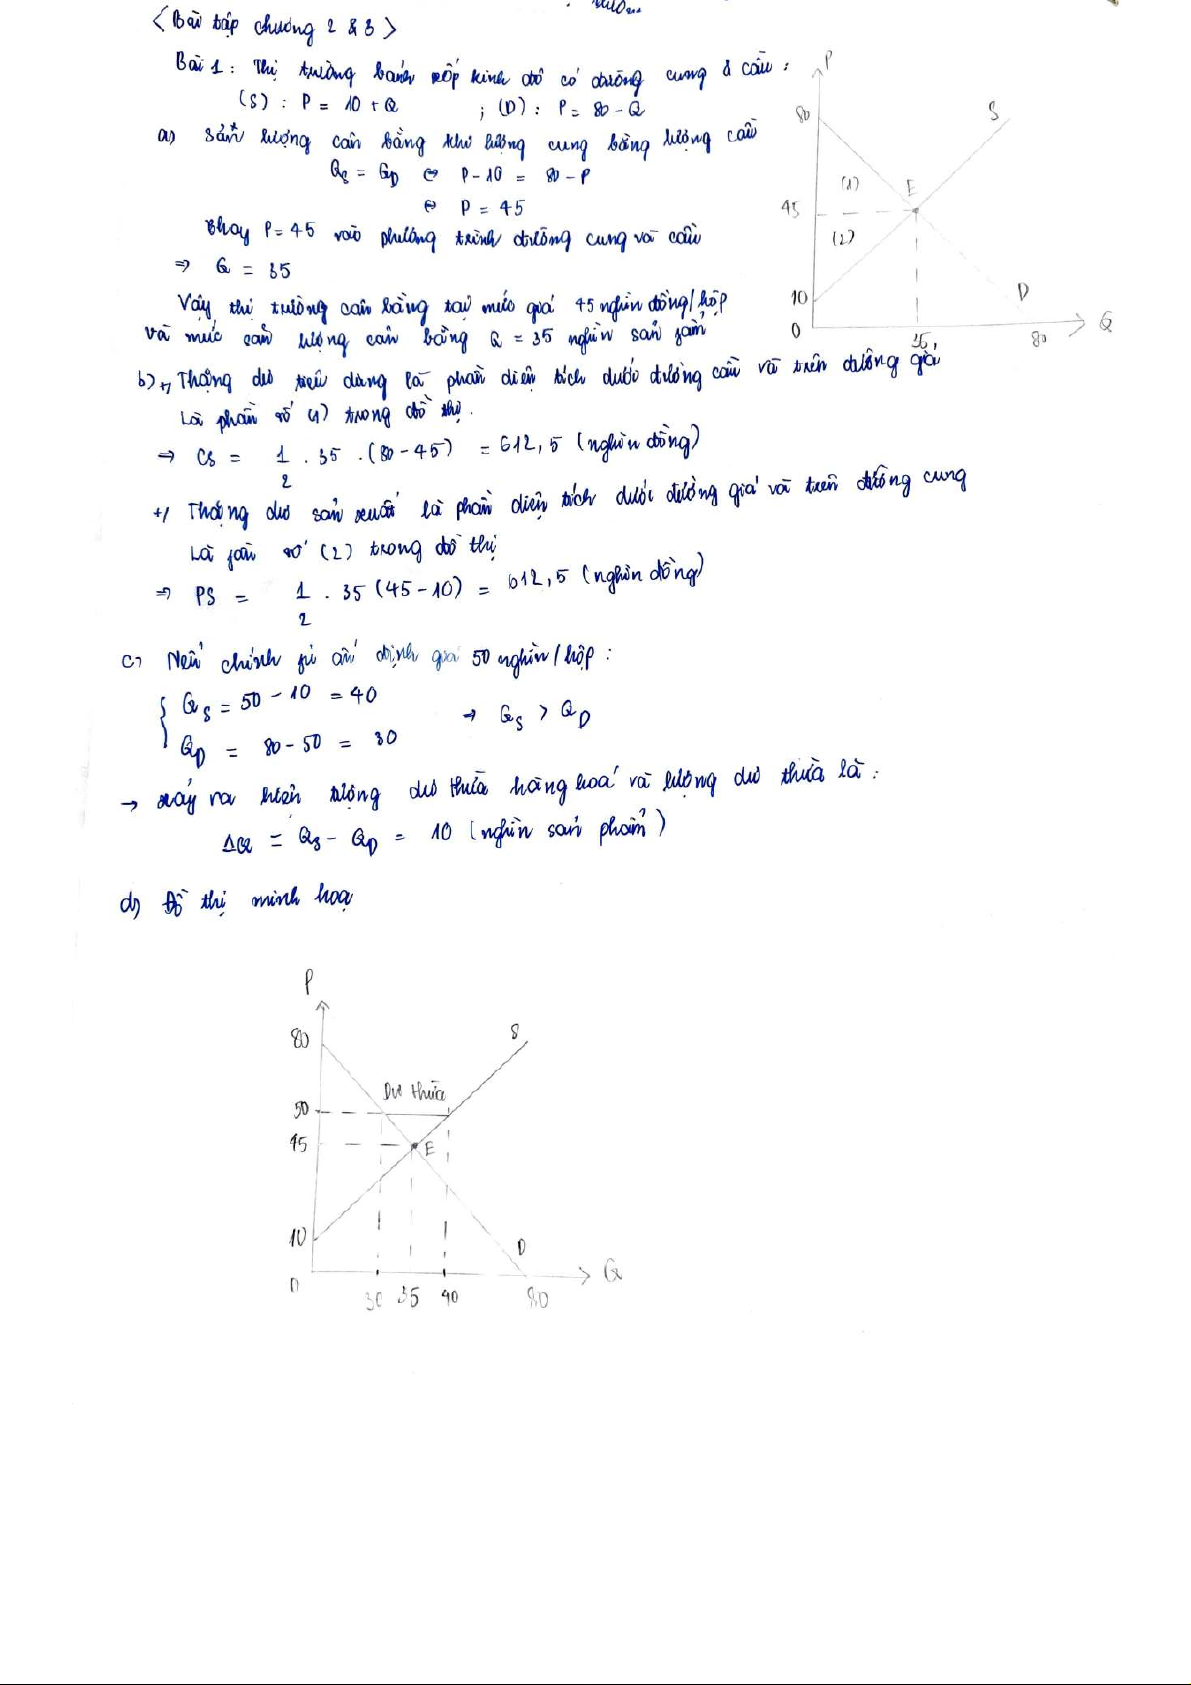 <Bài tập chương 2 & 3>
Bài 1: Thị trường bánh xốp kinh đô có đường cung & cầu:
(S): P = 10 + Q ; (D): P = 80 - Q
a) Sản lượng cân bằng khi lượng cung bằng lượng cầu
Qs = QD ⇔ P - 10 = 80 - P
⇔ P = 45
Thay P = 45 vào phương trình đường cung và cầu
⇒ Q = 35
Vậy thị trường cân bằng tại mức giá 45 nghìn đồng/hộp
và mức sản lượng cân bằng Q = 35 nghìn sản fẩm
P
80
S
(1)
E
45
(2)
10
D
0
35
80
Q
b) +, Thặng dư tiêu dùng là phần diện tích dưới đường cầu và trên đường giá
Là phần số (1) trong đồ thị.
⇒ CS = 1/2 . 35 . (80 - 45) = 612,5 (nghìn đồng)
+/ Thặng dư sản xuất là phần diện tích dưới đường giá và trên đường cung
Là fần số (2) trong đồ thị
⇒ PS = 1/2 . 35 (45 - 10) = 612,5 (nghìn đồng)
c) Nếu chính fủ ấn định giá 50 nghìn/hộp:
{ Qs = 50 - 10 = 40
QD = 80 - 50 = 30 → Qs > QD
→ xảy ra hiện tượng dư thừa hàng hoá và lượng dư thừa là:
ΔQ = Qs - QD = 10 (nghìn sản phẩm)
d) Đồ thị minh hoạ
P
80
S
Dư thừa
50
45
E
10
D
0
30 35 40 80
Q